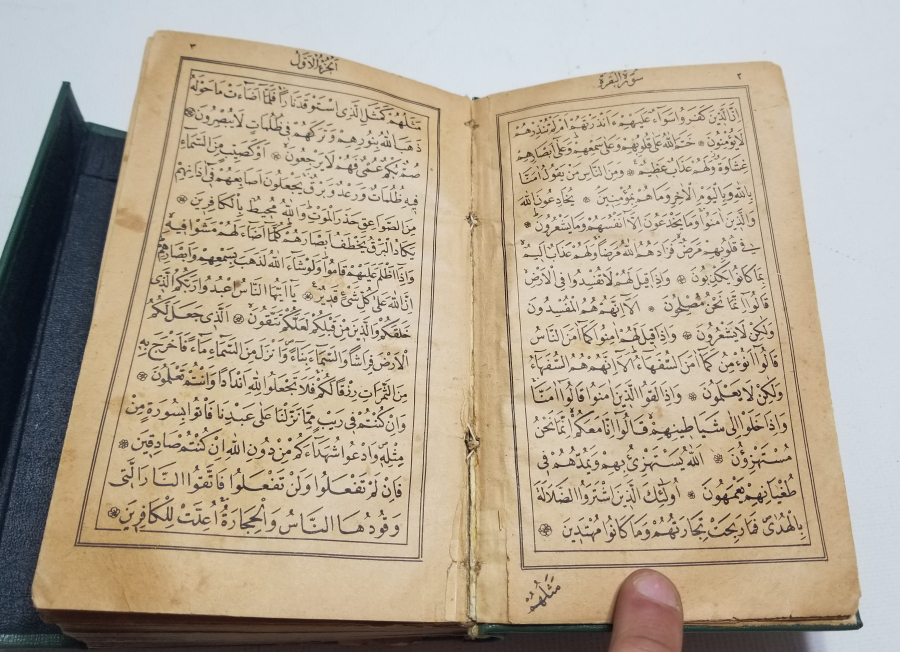 ٢
سُورَةُ الْبَقَرَةِ
اِنَّ الَّذِينَ كَفَرُوا سَوَاءٌ عَلَيْهِمْ ءَاَنْذَرْتَهُمْ اَمْ لَمْ تُنْذِرْهُمْ
لَا يُؤْمِنُونَ ۞ خَتَمَ اللهُ عَلَى قُلُوبِهِمْ وَعَلَى سَمْعِهِمْ وَعَلَى اَبْصَارِهِمْ
غِشَاوَةٌ وَلَهُمْ عَذَابٌ عَظِيمٌ ۞ وَمِنَ النَّاسِ مَنْ يَقُولُ اٰمَنَّا
بِاللهِ وَبِالْيَوْمِ الْاٰخِرِ وَمَا هُمْ بِمُؤْمِنِينَ ۞ يُخَادِعُونَ اللهَ
وَالَّذِينَ اٰمَنُوا وَمَا يَخْدَعُونَ اِلَّا اَنْفُسَهُمْ وَمَا يَشْعُرُونَ ۞
فِي قُلُوبِهِمْ مَرَضٌ فَزَادَهُمُ اللهُ مَرَضًا وَلَهُمْ عَذَابٌ اَلِيمٌ
بِمَا كَانُوا يَكْذِبُونَ ۞ وَاِذَا قِيلَ لَهُمْ لَا تُفْسِدُوا فِي الْاَرْضِ
قَالُوا اِنَّمَا نَحْنُ مُصْلِحُونَ ۞ اَلَا اِنَّهُمْ هُمُ الْمُفْسِدُونَ
وَلٰكِنْ لَا يَشْعُرُونَ ۞ وَاِذَا قِيلَ لَهُمْ اٰمِنُوا كَمَا اٰمَنَ النَّاسُ
قَالُوا اَنُؤْمِنُ كَمَا اٰمَنَ السُّفَهَاءُ اَلَا اِنَّهُمْ هُمُ السُّفَهَاءُ
وَلٰكِنْ لَا يَعْلَمُونَ ۞ وَاِذَا لَقُوا الَّذِينَ اٰمَنُوا قَالُوا اٰمَنَّا
وَاِذَا خَلَوْا اِلَى شَيَاطِينِهِمْ قَالُوا اِنَّا مَعَكُمْ اِنَّمَا نَحْنُ
مُسْتَهْزِؤُنَ ۞ اَللهُ يَسْتَهْزِئُ بِهِمْ وَيَمُدُّهُمْ فِي
طُغْيَانِهِمْ يَعْمَهُونَ ۞ اُولٰئِكَ الَّذِينَ اشْتَرَوُا الضَّلَالَةَ
بِالْهُدٰى فَمَا رَبِحَتْ تِجَارَتُهُمْ وَمَا كَانُوا مُهْتَدِينَ ۞
مَثَلُهُمْ
٣
اَلْجُزْءُ الْاَوَّلُ
مَثَلُهُمْ كَمَثَلِ الَّذِي اسْتَوْقَدَ نَارًا فَلَمَّا اَضَاءَتْ مَا حَوْلَهُ
ذَهَبَ اللهُ بِنُورِهِمْ وَتَرَكَهُمْ فِي ظُلُمَاتٍ لَا يُبْصِرُونَ ۞
صُمٌّ بُكْمٌ عُمْيٌ فَهُمْ لَا يَرْجِعُونَ ۞ اَوْ كَصَيِّبٍ مِنَ السَّمَاءِ
فِيهِ ظُلُمَاتٌ وَرَعْدٌ وَبَرْقٌ يَجْعَلُونَ اَصَابِعَهُمْ فِي اٰذَانِهِمْ
مِنَ الصَّوَاعِقِ حَذَرَ الْمَوْتِ وَاللهُ مُحِيطٌ بِالْكَافِرِينَ ۞
يَكَادُ الْبَرْقُ يَخْطَفُ اَبْصَارَهُمْ كُلَّمَا اَضَاءَ لَهُمْ مَشَوْا فِيهِ
وَاِذَا اَظْلَمَ عَلَيْهِمْ قَامُوا وَلَوْ شَاءَ اللهُ لَذَهَبَ بِسَمْعِهِمْ وَاَبْصَارِهِمْ
اِنَّ اللهَ عَلَى كُلِّ شَيْءٍ قَدِيرٌ ۞ يَا اَيُّهَا النَّاسُ اعْبُدُوا رَبَّكُمُ الَّذِي
خَلَقَكُمْ وَالَّذِينَ مِنْ قَبْلِكُمْ لَعَلَّكُمْ تَتَّقُونَ ۞ اَلَّذِي جَعَلَ لَكُمُ
الْاَرْضَ فِرَاشًا وَالسَّمَاءَ بِنَاءً وَاَنْزَلَ مِنَ السَّمَاءِ مَاءً فَاَخْرَجَ بِهِ
مِنَ الثَّمَرَاتِ رِزْقًا لَكُمْ فَلَا تَجْعَلُوا لِلهِ اَنْدَادًا وَاَنْتُمْ تَعْلَمُونَ ۞
وَاِنْ كُنْتُمْ فِي رَيْبٍ مِمَّا نَزَّلْنَا عَلَى عَبْدِنَا فَاْتُوا بِسُورَةٍ مِنْ
مِثْلِهِ وَادْعُوا شُهَدَاءَكُمْ مِنْ دُونِ اللهِ اِنْ كُنْتُمْ صَادِقِينَ ۞
فَاِنْ لَمْ تَفْعَلُوا وَلَنْ تَفْعَلُوا فَاتَّقُوا النَّارَ الَّتِي
وَقُودُهَا النَّاسُ وَالْحِجَارَةُ اُعِدَّتْ لِلْكَافِرِينَ ۞